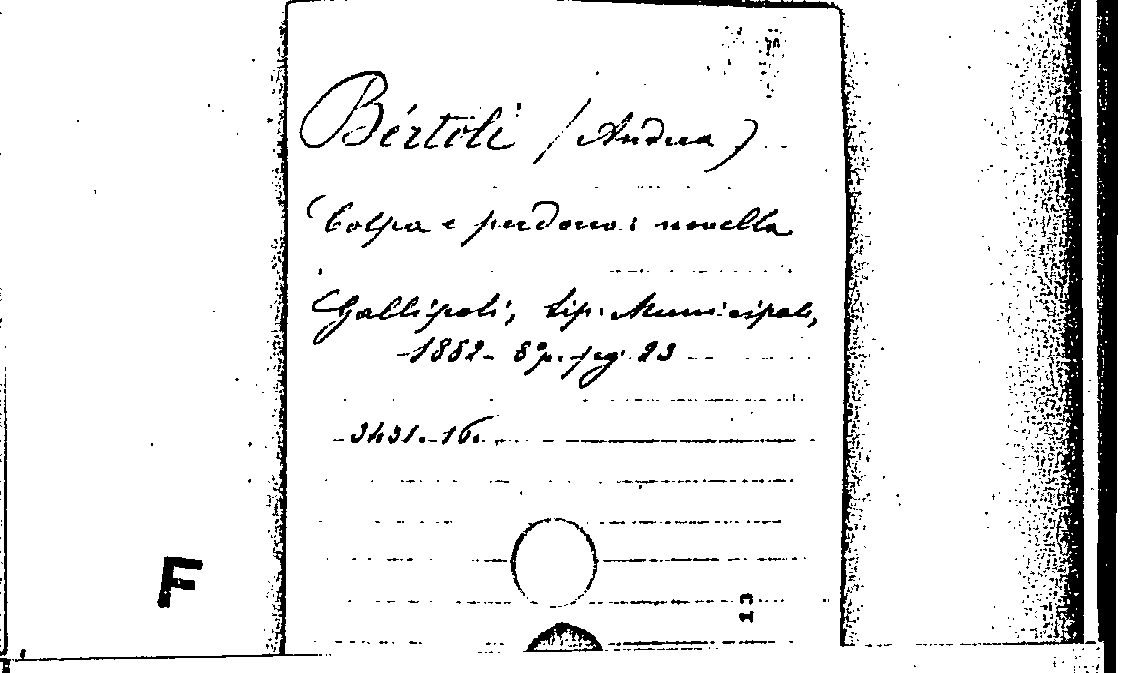 Bertoli (Andrea)
Colpa e perdono: novella
Gallipoli, tip. Municipale,
1882- 8° p. pag. 23
3431.-16.
F
13